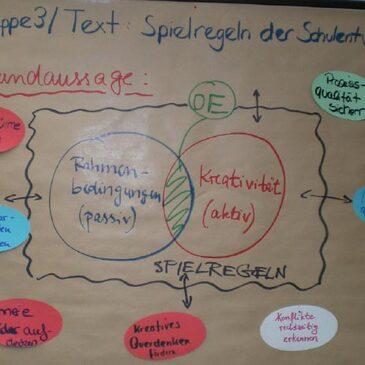 ppe3/Text: Spielregeln der Schulent
undaussage:
OE
Prozess-
qualität
sichern
Rahmen-
bedingungen
(passiv)
Kreativität
(aktiv)
SPIELREGELN
Kreatives
Querdenken
fördern
Konflikte
rechtzeitig
erkennen